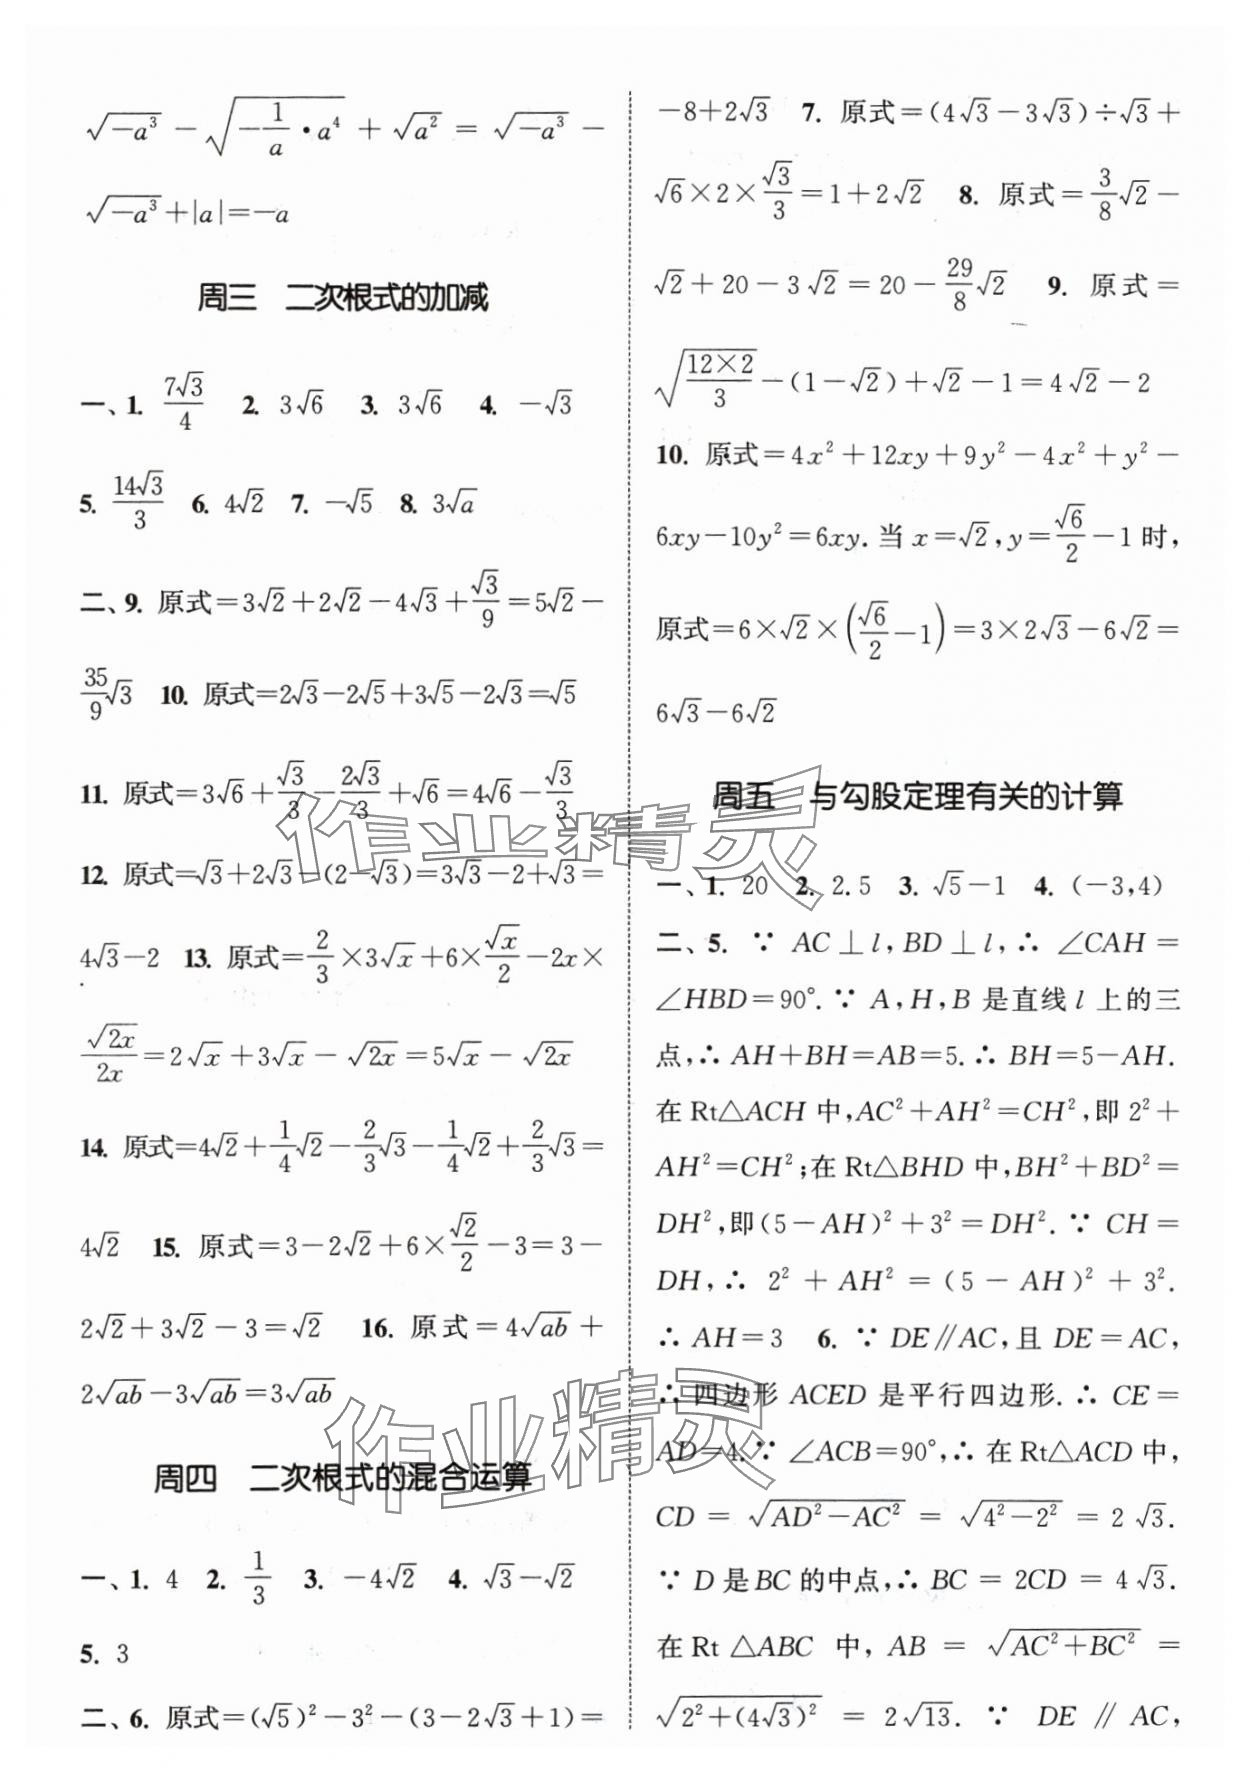 √(-a³) - √(-1/a·a⁴) + √(a²) = √(-a³) -
√(-a³)+|a|=-a
周三 二次根式的加减
一、1. 7√3/4 2. 3√6 3. 3√6 4. -√3
5. 14√3/3 6. 4√2 7. -√5 8. 3√a
二、9. 原式=3√2+2√2-4√3+√3/9=5√2-
35/9√3 10. 原式=2√3-2√5+3√5-2√3=√5
11. 原式=3√6+√3/3-2√3/3+√6=4√6-√3/3
12. 原式=√3+2√3-(2-√3)=3√3-2+√3=
4√3-2 13. 原式=2/3×3√x+6×√x/2-2x×
√(2x)/2x=2√x+3√x-√(2x)=5√x-√(2x)
14. 原式=4√2+1/4√2-2/3√3-1/4√2+2/3√3=
4√2 15. 原式=3-2√2+6×√2/2-3=3-
2√2+3√2-3=√2 16. 原式=4√(ab)+
2√(ab)-3√(ab)=3√(ab)
周四 二次根式的混合运算
一、1. 4 2. 1/3 3. -4√2 4. √3-√2
5. 3
二、6. 原式=(√5)²-3²-(3-2√3+1)=
-8+2√3 7. 原式=(4√3-3√3)÷√3+
√6×2×√3/3=1+2√2 8. 原式=3/8√2-
√2+20-3√2=20-29/8√2 9. 原式=
√(12×2/3)-(1-√2)+√2-1=4√2-2
10. 原式=4x²+12xy+9y²-4x²+y²-
6xy-10y²=6xy.当x=√2,y=√6/2-1时,
原式=6×√2×(√6/2-1)=3×2√3-6√2=
6√3-6√2
周五 与勾股定理有关的计算
一、1. 20 2. 2.5 3. √5-1 4. (-3,4)
二、5. ∵ AC⊥l,BD⊥l,∴ ∠CAH=
∠HBD=90°.∵ A,H,B是直线l上的三
点,∴ AH+BH=AB=5.∴ BH=5-AH.
在Rt△ACH中,AC²+AH²=CH²,即2²+
AH²=CH²;在Rt△BHD中,BH²+BD²=
DH²,即(5-AH)²+3²=DH².∵ CH=
DH,∴ 2²+AH²=(5-AH)²+3².
∴ AH=3 6. ∵ DE∥AC,且DE=AC,
∴四边形ACED是平行四边形.∴ CE=
AD=4.∵ ∠ACB=90°,∴ 在Rt△ACD中,
CD=√(AD²-AC²)=√(4²-2²)=2√3.
∵ D是BC的中点,∴ BC=2CD=4√3.
在Rt△ABC中,AB=√(AC²+BC²)=
√(2²+(4√3)²)=2√13.∵ DE∥AC,
作业精灵
作业精灵